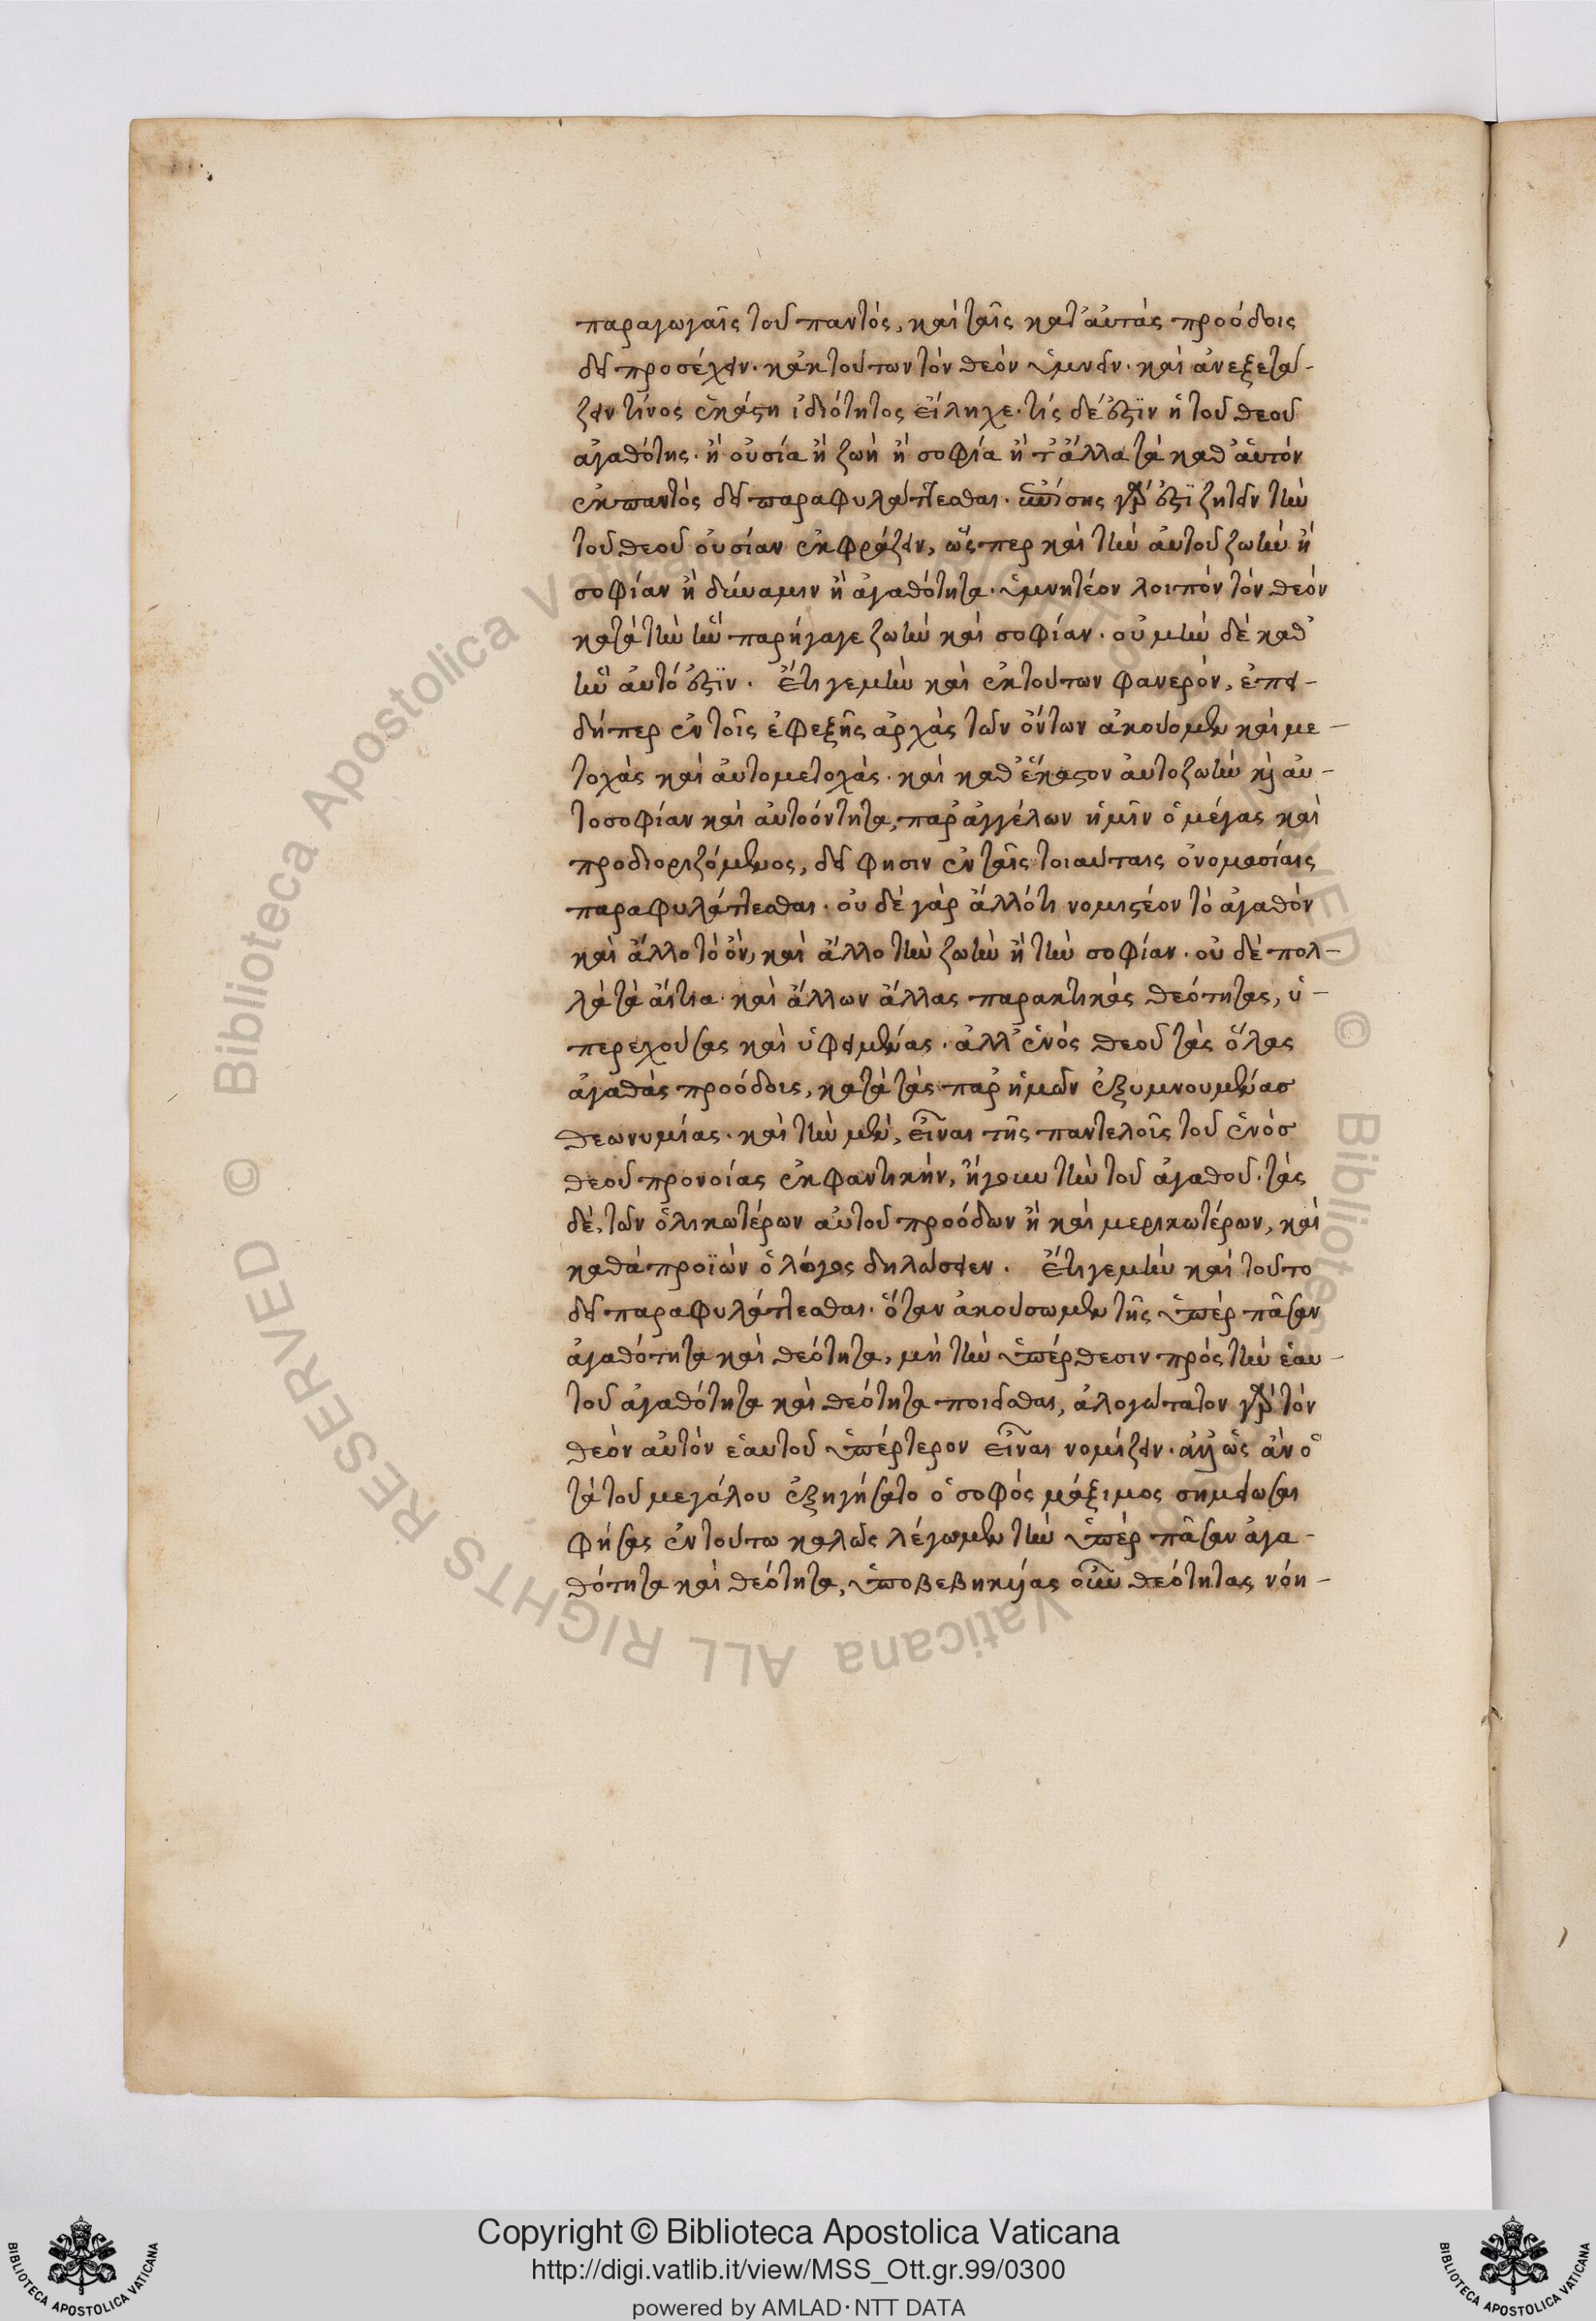 παραγωγαῖς τοῦ παντὸς, καὶ ταῖς κατ' αὐτὰς προόδοις
δεῖ προσέχειν. κἀκ τούτων τὸν θεὸν ὑμνεῖν. καὶ ἀνεξετά-
ζειν τίνος ἑκάστη ἰδιότητος εἴληχε. τίς δέ ἐστϊν ἡ τοῦ θεοῦ
ἀγαθότης. ἢ οὐσία ἢ ζωὴ ἢ σοφία ἢ τἄλλα τὰ καθ' αὑτὸν
ἐκ παντὸς δεῖ παραφυλάττεσθαι. ἐπίσης γάρ ἐστϊ ζητεῖν τὴν
τοῦ θεοῦ οὐσίαν ἐκφράζειν, ὥσπερ καὶ τὴν αὐτοῦ ζωὴν ἢ
σοφίαν ἢ δύναμιν ἢ ἀγαθότητα. ὑμνητέον λοιπὸν τὸν θεὸν
κατὰ τὴν ἣν παρήγαγε ζωὴν καὶ σοφίαν. οὐ μὴν δὲ καθ'
ἣν αὐτό ἐστϊν. Ἔτι γε μὴν καὶ ἐκ τούτων φανερὸν, ἐπει-
δήπερ ἐν τοῖς ἐφεξῆς ἀρχὰς τῶν ὄντων ἀκούομεν καὶ με-
τοχὰς καὶ αὐτομετοχὰς. καὶ καθ' ἕκαστον αὐτοζωὴν καὶ αὐ-
τοσοφίαν καὶ αὐτοόντητα, παρ' ἀγγέλων ἡμῖν ὁ μέγας καὶ
προδιοριζόμενος, δεῖ φησιν ἐν ταῖς τοιαύταις ὀνομασίαις
παραφυλάττεσθαι. οὐ δὲ γὰρ ἄλλό τι νομιστέον τὸ ἀγαθὸν
καὶ ἄλλο τὸ ὂν, καὶ ἄλλο τὴν ζωὴν ἢ τὴν σοφίαν. οὐ δὲ πολ-
λὰ τὰ αἴτια. καὶ ἄλλων ἄλλας παρακτικὰς θεότητας, ὑ-
περεχούσας καὶ ὑφειμένας. ἀλλ' ἑνὸς θεοῦ τὰς ὅλας
ἀγαθὰς προόδοις, κατὰ τὰς παρ' ἡμῶν ἐξυμνουμένας
θεωνυμίας. καὶ τὴν μὲν, εἶναι τῆς παντελοῖς τοῦ ἑνὸς
θεοῦ προνοίας ἐκφαντικὴν, ἤγουν τὴν τοῦ ἀγαθοῦ. τὰς
δὲ, τῶν ὁλικωτέρων αὐτοῦ προόδων ἢ καὶ μερικωτέρων, καὶ
καθὰ προϊὼν ὁ λόγος δηλώσειεν. Ἔτι γε μὴν καὶ τοῦτο
δεῖ παραφυλάττεσθαι. ὅταν ἀκούσωμεν τῆς ὑπὲρ πᾶσαν
ἀγαθότητα καὶ θεότητα, μὴ τὴν ὑπέρθεσιν πρὸς τὴν ἑαυ-
τοῦ ἀγαθότητα καὶ θεότητα ποιεῖσθαι, ἀλογώτατον γὰρ τὸν
θεὸν αὐτὸν ἑαυτοῦ ὑπέρτερον εἶναι νομίζειν. ἀλλ' ὡς ἂν ὁ
τὰ τοῦ μεγάλου ἐξηγήσατο ὁ σοφὸς μάξιμος σημειῶσαι
φήσας ἐν τούτω καλῶς λέγωμεν τὴν ὑπὲρ πᾶσαν ἀγα-
θότητα καὶ θεότητα, ὑποβεβηκυίας οὖν θεότητας νόη-